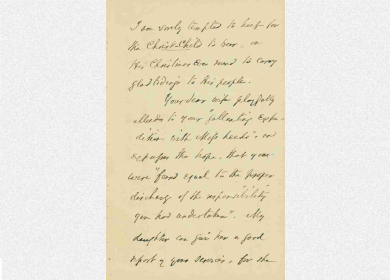 I am sorely tempted to keep for
the Christ-Child to bear, on
His Christmas Eve round to carry
glad tidings to His people.
Your dear wife playfully
alludes to your "gallanting expe-
dition with Miss", and
expresses the hope, that you
were "found equal to the proper
discharge of the responsibility
you had undertaken". My
daughter can give her a good
report of your services, for she